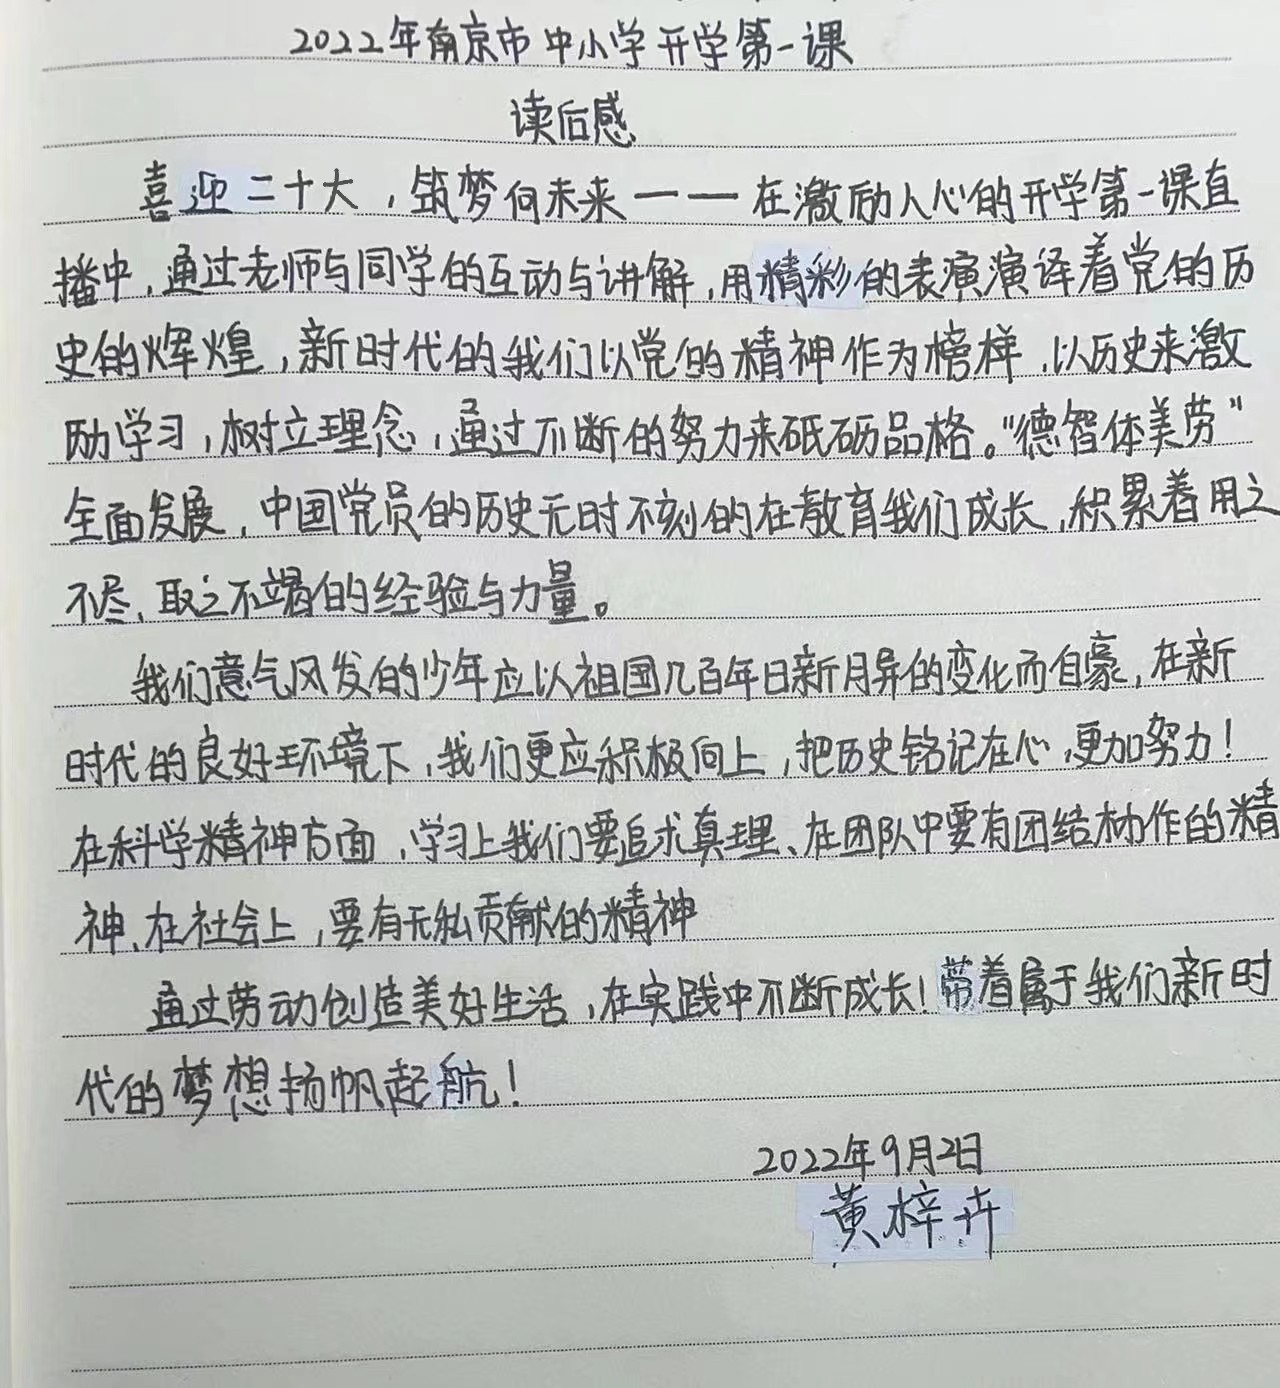 2022年南京市中小学开学第一课
读后感
喜迎二十大，筑梦向未来——在激励人心的开学第一课直
播中，通过老师与同学的互动与讲解，用精彩的表演演译着党的历
史的辉煌，新时代的我们以党的精神作为榜样，以历史来激
励学习，树立理念，通过不断的努力来砥砺品格。“德智体美劳”
全面发展，中国党员的历史无时不刻的在教育我们成长，积累着用之
不尽，取之不竭的经验与力量。
我们意气风发的少年应以祖国几百年日新月异的变化而自豪，在新
时代的良好环境下，我们更应积极向上，把历史铭记在心，更加努力！
在科学精神方面，学习上我们要追求真理、在团队中要有团结协作的精
神、在社会上，要有无私贡献的精神
通过劳动创造美好生活，在实践中不断成长！带着属于我们新时
代的梦想扬帆起航！
2022年9月2日
黄梓卉